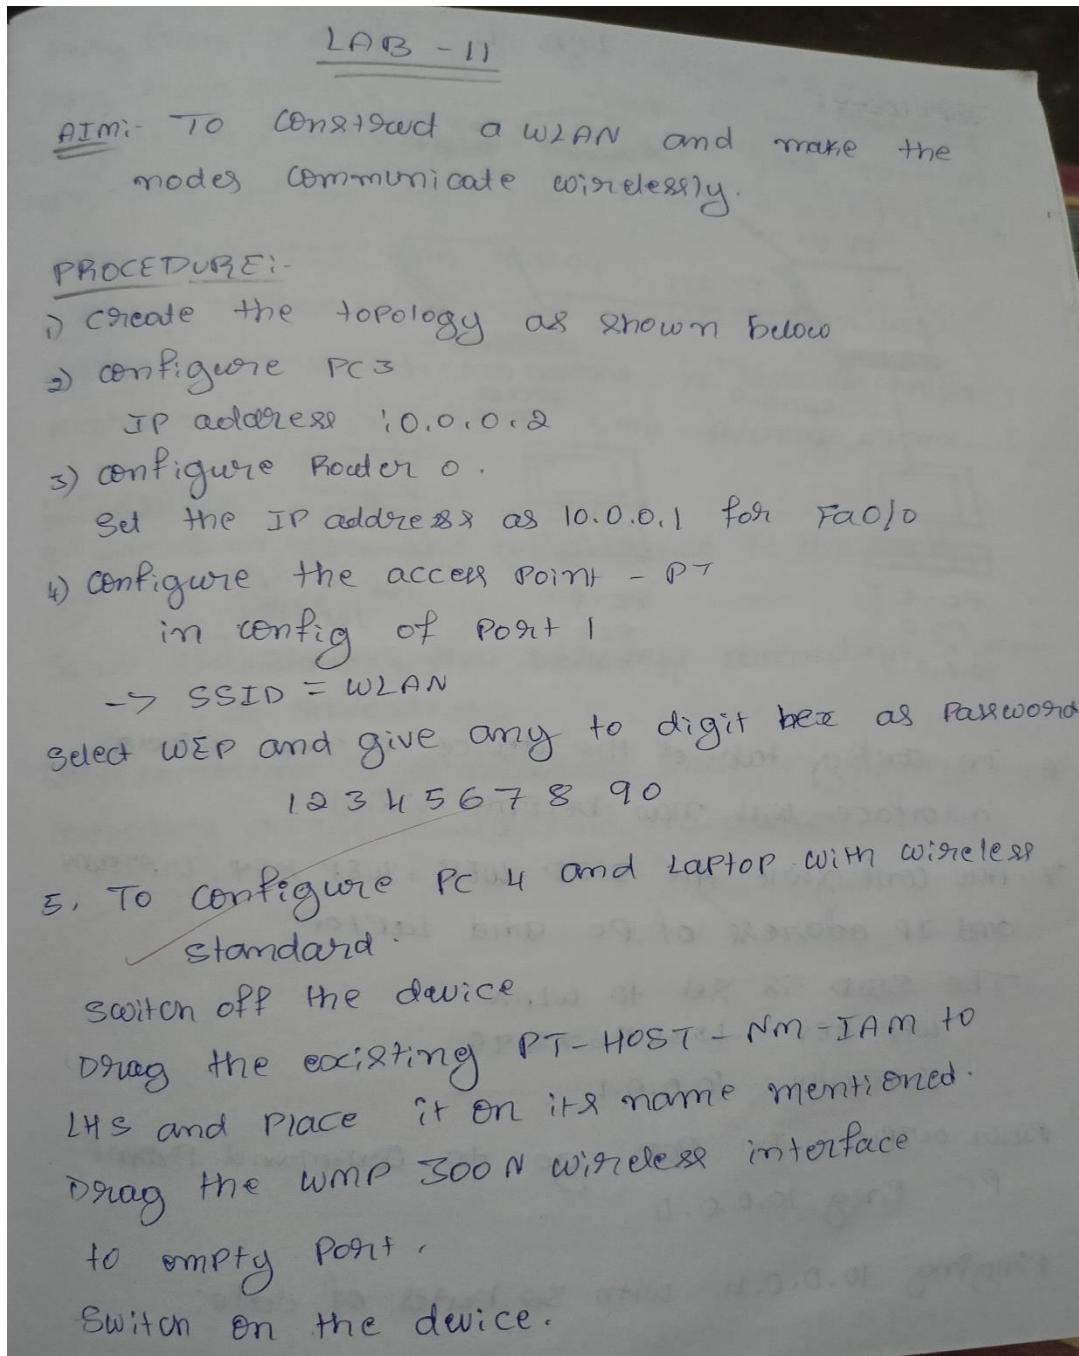 LAB - 11
AIM:- To construct a WLAN and make the
nodes communicate wirelessly.
PROCEDURE:-
1) create the topology as shown below
2) configure PC3
IP address 10.0.0.2
3) configure Router 0.
Set the IP address as 10.0.0.1 for Fa0/0
4) configure the access Point - PT
in config of Port 1
-> SSID = WLAN
Select WEP and give any to digit hex as Password
1234567890
5. To configure PC 4 and Laptop with wireless
standard.
switch off the device
Drag the existing PT-HOST-NM-IAM to
LHS and Place it on its name mentioned.
Drag the WMP 300N wireless interface
to empty Port.
Switch on the device.